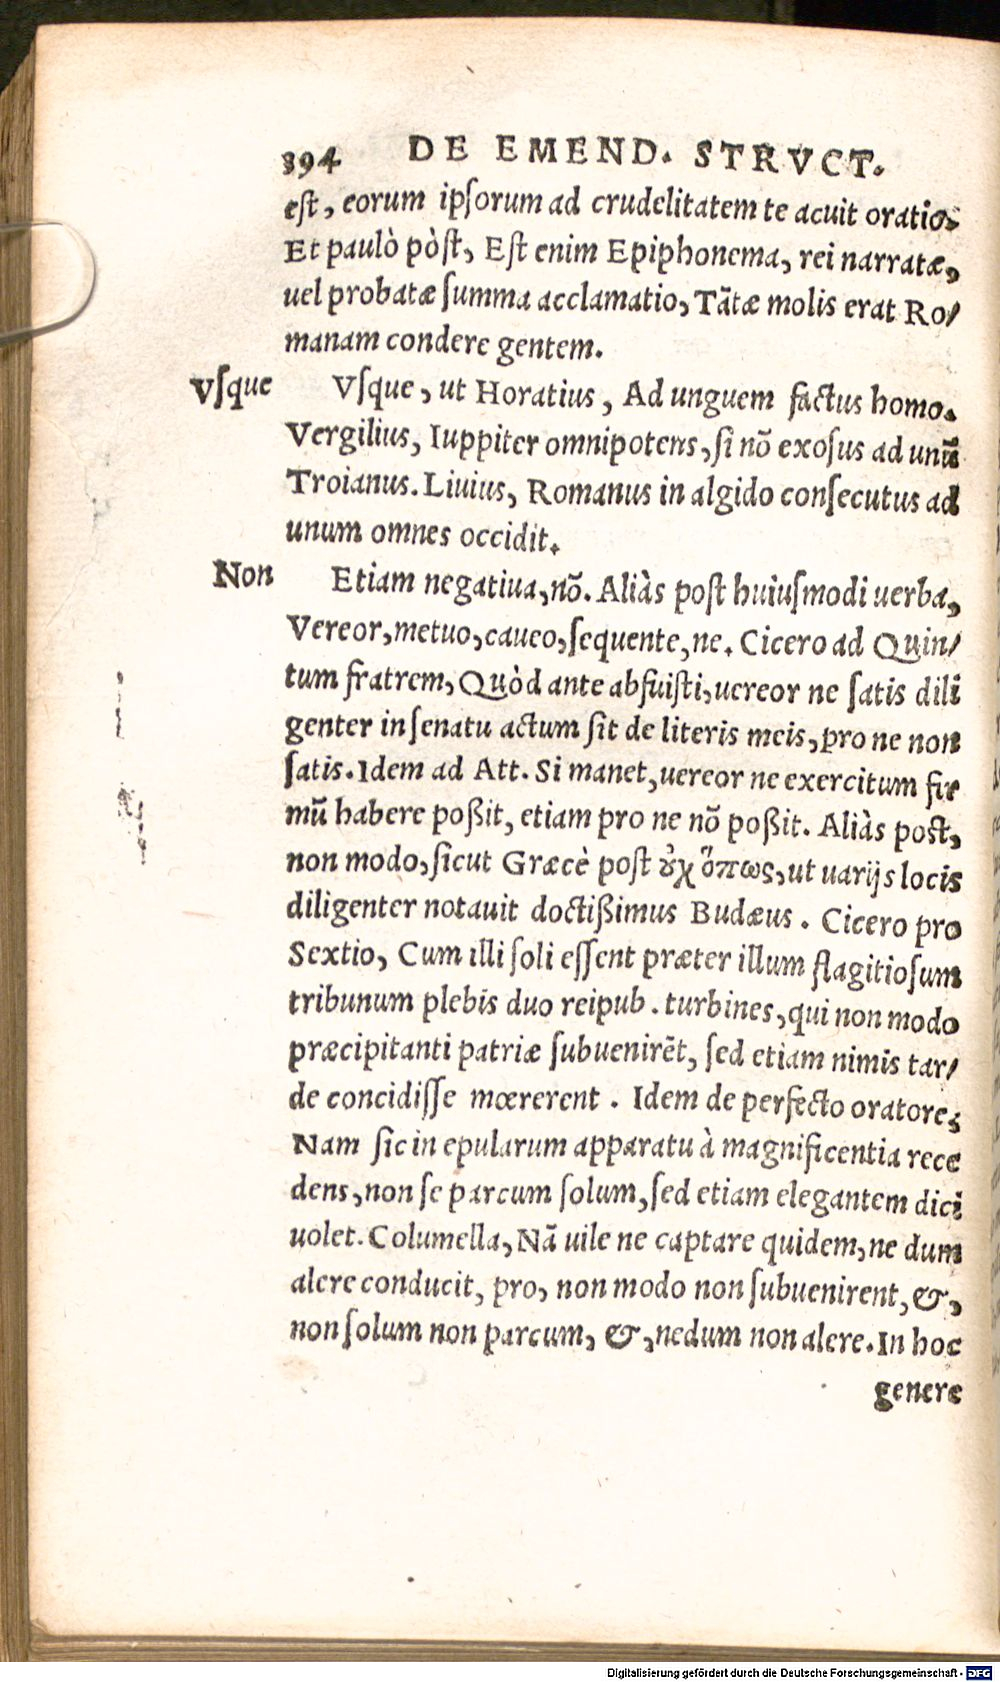 394 DE EMEND. STRVCT.
est, eorum ipsorum ad crudelitatem te acuit oratio.
Et paulò pòst, Est enim Epiphonema, rei narratæ,
uel probatæ summa acclamatio, Tãtæ molis erat Ro/
manam condere gentem.
Vsque
Vsque, ut Horatius, Ad unguem factus homo.
Vergilius, Iuppiter omnipotens, si nõ exosus ad unũ
Troianus. Liuius, Romanus in algido consecutus ad
unum omnes occidit.
Non
Etiam negatiua, nõ. Aliàs post huiusmodi uerba,
Vereor, metuo, caueo, sequente, ne. Cicero ad Quin/
tum fratrem, Quòd ante abfuisti, uereor ne satis dili
genter in senatu actum sit de literis meis, pro ne non
satis. Idem ad Att. Si manet, uereor ne exercitum fir
mũ habere poßit, etiam pro ne nõ poßit. Aliàs post,
non modo, sicut Græcè post οὐχ ὅπως, ut uarijs locis
diligenter notauit doctißimus Budæus. Cicero pro
Sextio, Cum illi soli essent præter illum flagitiosum
tribunum plebis duo reipub. turbines, qui non modo
præcipitanti patriæ subuenirẽt, sed etiam nimis tar/
de concidisse mœrerent. Idem de perfecto oratore,
Nam sic in epularum apparatu à magnificentia rece
dens, non se parcum solum, sed etiam elegantem dici
uolet. Columella, Nã uile ne captare quidem, ne dum
alere conducit, pro, non modo non subuenirent, &,
non solum non parcum, &, nedum non alere. In hoc
genere
Digitalisierung gefördert durch die Deutsche Forschungsgemeinschaft - DFG